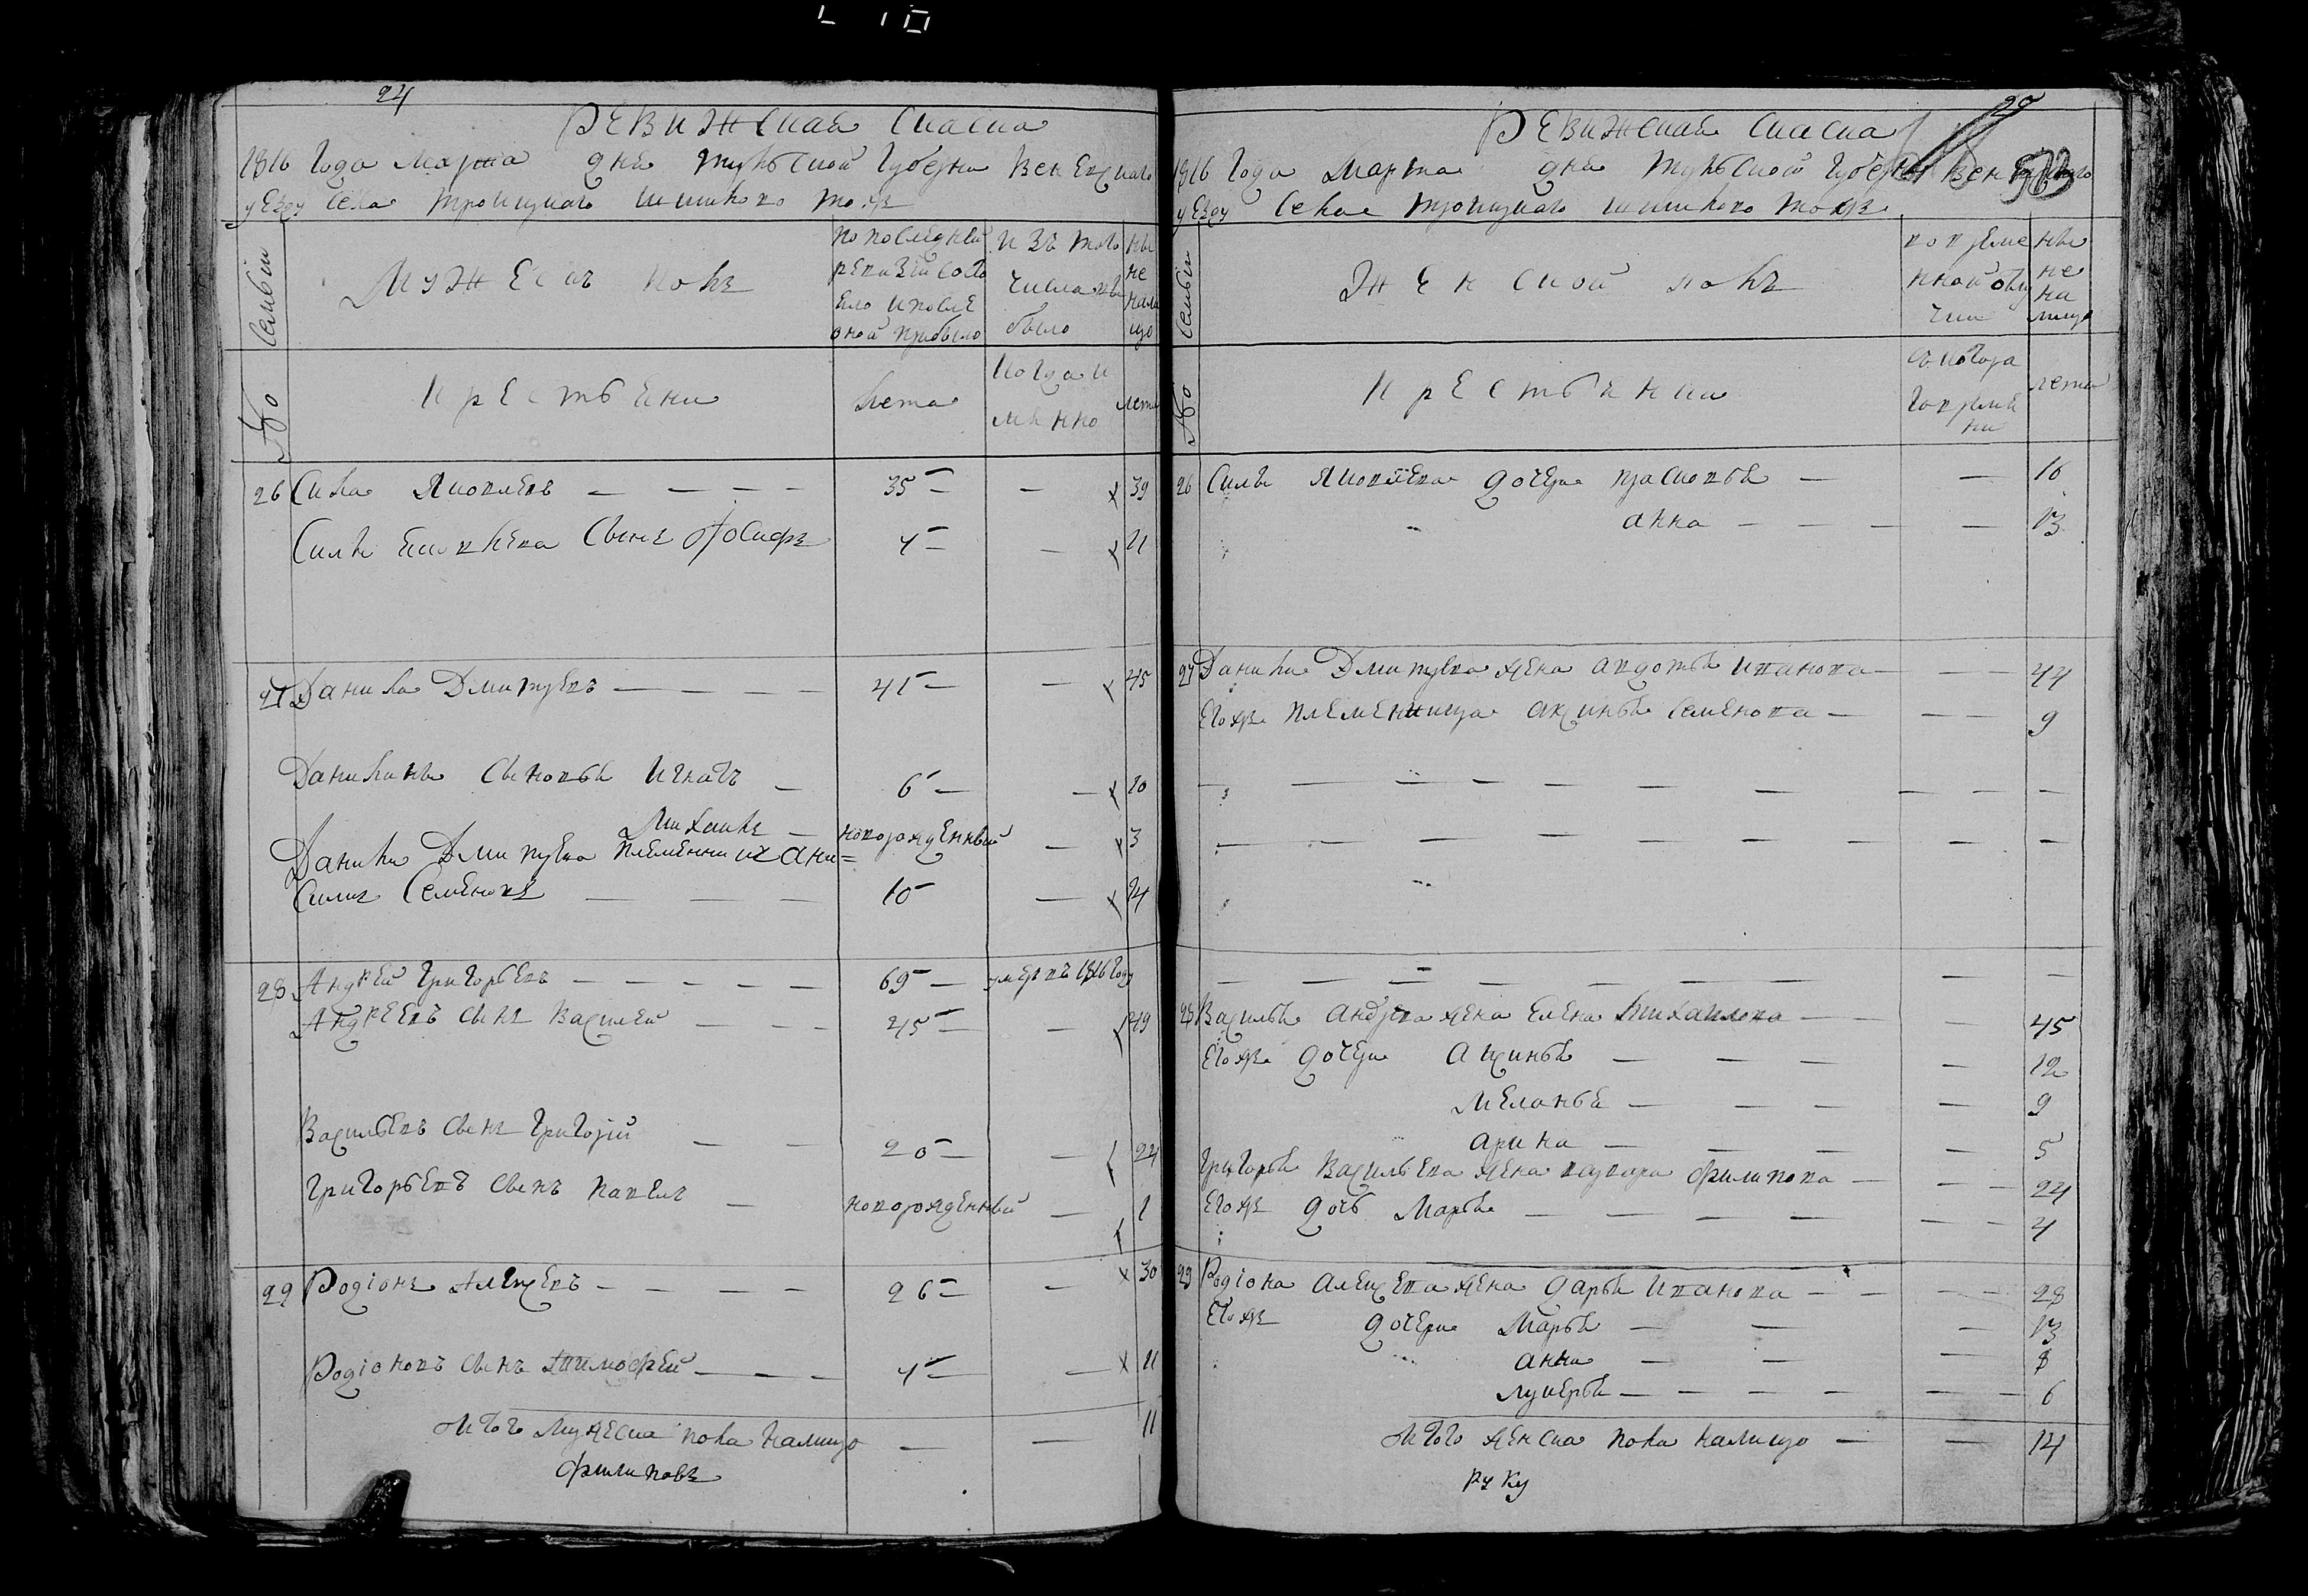 24
Ревижская скаска
1816 года марта дня тульской губерни веневскаго
уезду села троицкаго шишлово тож
№ семьи
Мужеск поле
по последней
ревизии состо
яло и после
оной прибыло
изъ того
числа вы
было
ны
не
нали
цо
крестьяни
лета
когда и
мянно
лета
26 Сила Яковлевъ — — — — 35 — — 39
Силы Яковлева сынъ Иосифъ 7 — — 11
27 Данила Дмитревъ — — — — 41 — — 45
Даниловы сыновья Игнатъ — 6 — — 10
Михаилъ — новорожденный — 3
Данилы Дмитрева племянник Ани=
симъ Семеновъ — — — 10 — — 14
28 Андрей Григорьевъ — — — — — 69 — умеръ въ 1816 году
Андреевъ сынъ Василей — — — 45 — — 49
Васильевъ сынъ Григорий — — 20 — — 24
Григорьевъ сынъ Павелъ — новорожденный — 1
29 Родионъ Алексевъ — — — — 26 — — 30
Родионовъ сынъ Тимофей — — — 7 — — 11
Итого мужеска пола налицо — — 11
Филиповъ
20
Ревижская скаска
1816 года марта дня тульской губерни веневскаго
уезду села троицкаго шишлово тож
№ семьи
Женской полъ
во време
нной отлу
чки
ны
не
на
лицо
крестьянки
съ котора
го времe
ни
лета
26 Силы Яковлева дочери прасковья — — 16
анна — — — — 13
27 Данилы Дмитрева жена авдотья иванова — — — 44
Егож племенница аксинья семенова — — — 9
28 Василья андрева жена елена михаилова — — — 45
Егож дочери аксинья — — — — 12
меланья — — — — 9
арина — — — — 5
Григорья Васильева жена варвара филипова — — — 24
Егож дочь марья — — — — — — 4
29 Родиона алексева жена дарья иванова — — — — 28
Егож дочери марья — — — 13
анна — — — 8
лукерья — — — — — — 6
Итого женска пола налицо — — 14
руку